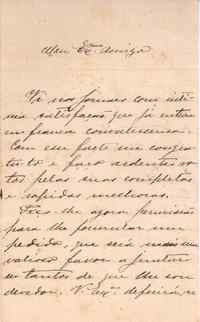 Meu Exº. Amigo
Vi nos jornaes com inti-
ma satisfação que já entrou
em franca convalescença.
Com esse facto me congra-
tulo e faço ardentes vo-
tos pelas suas completas
e rapidas melhoras.
Peço-lhe agora permissão
para lhe formular um
pedido, que será mais um
valioso favor a juntar
a tantos de que lhe sou
devedor. V. Exª.